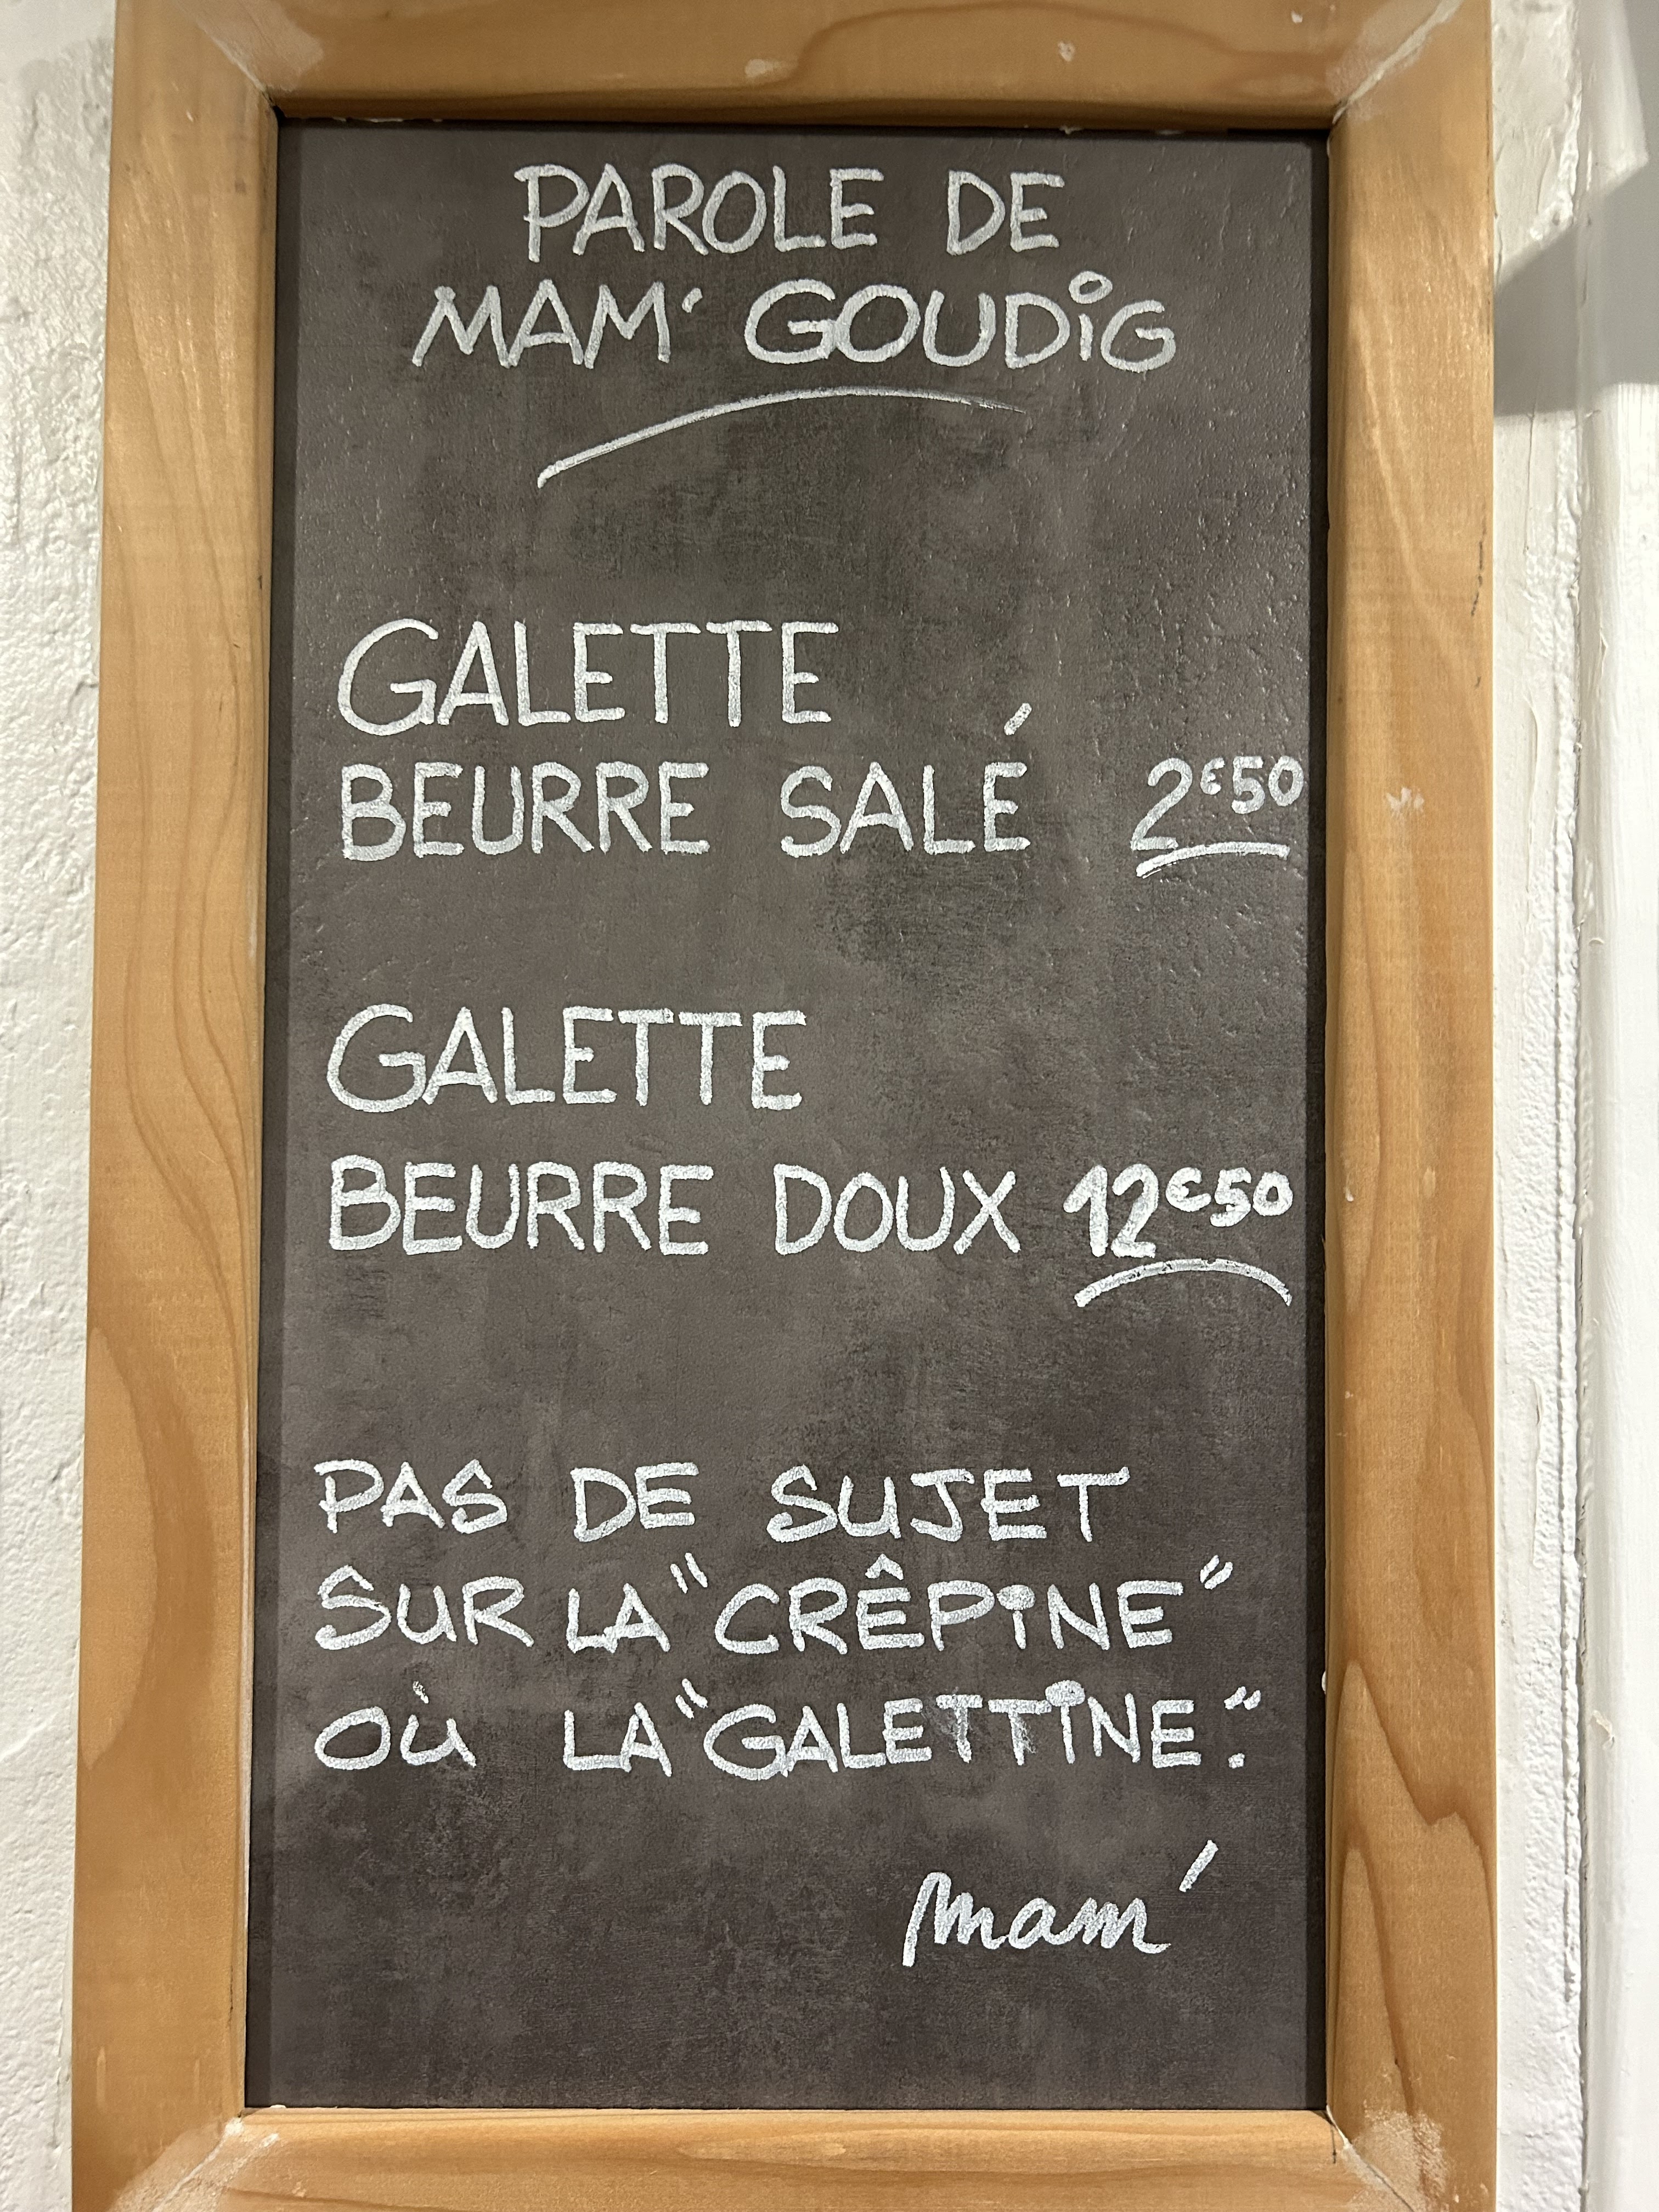 PAROLE DE
MAM' GOUDIG
GALETTE
BEURRE SALÉ 2€50
GALETTE
BEURRE DOUX 12€50
PAS DE SUJET
SUR LA "CRÊPINE"
OÙ LA "GALETTINE".
Mam'